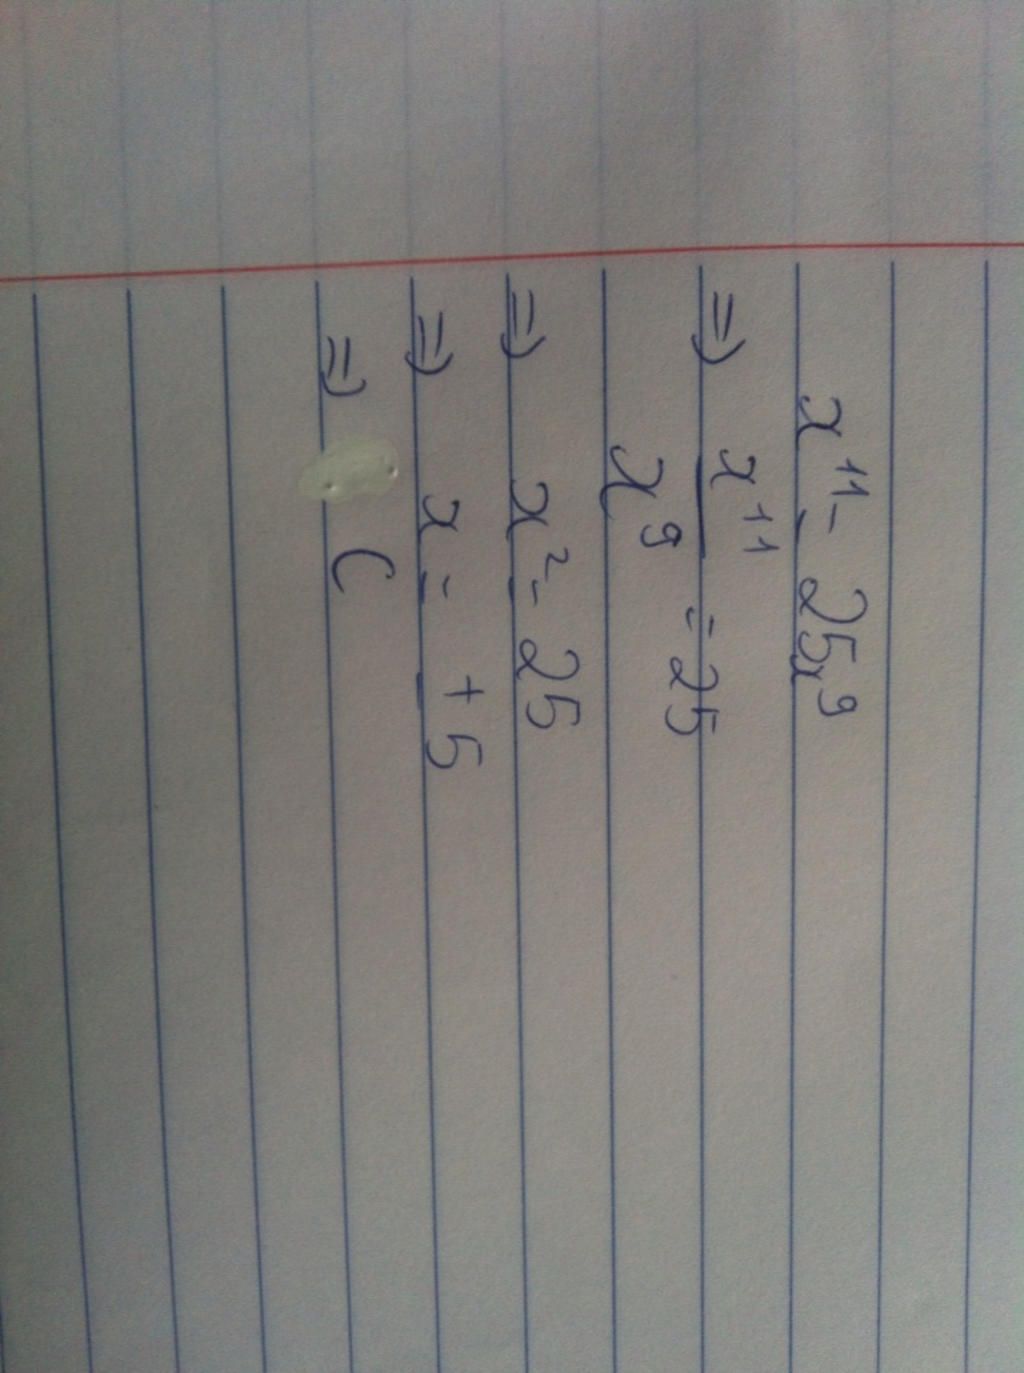 x¹¹ = 25x⁹
⇒ x¹¹/x⁹ = 25
⇒ x² = 25
⇒ x = ± 5
⇒ C